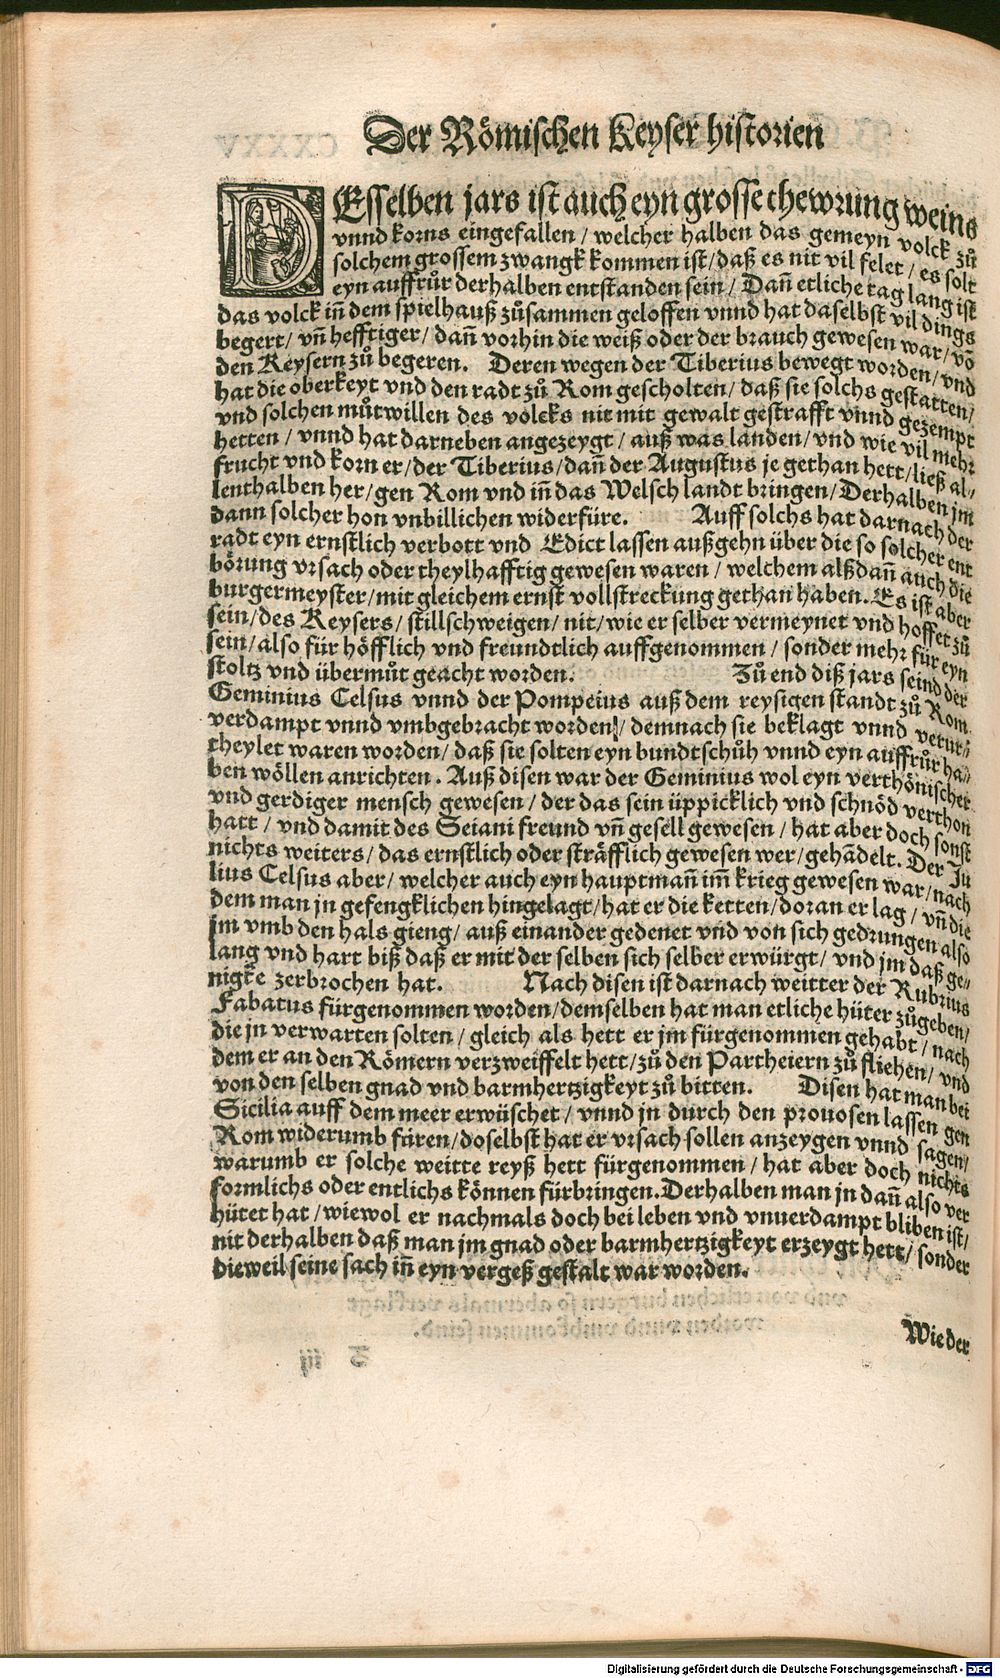 Der Römischen Keyser historien
DEsselben jars ist auch eyn grosse thewrung weins
vnnd korns eingefallen / welcher halben das gemeyn volck zů
solchem grossem zwangk kommen ist / daß es nit vil felet / es solt
eyn auffrůr derhalben entstanden sein / Dañ etliche tag lang ist
das volck iñ dem spielhauß zůsammen geloffen vnnd hat daselbst vil dings
begert / vñ hefftiger / dañ vorhin die weiß oder der brauch gewesen war / võ
den Keysern zů begeren. Deren wegen der Tiberius bewegt worden / vnd
hat die oberkeyt vnd den radt zů Rom gescholten / daß sie solchs gestatten /
vnd solchen můtwillen des volcks nit mit gewalt gestrafft vnnd gezempt
hetten / vnnd hat darneben angezeygt / auß was landen / vnd wie vil mehr
frucht vnd korn er / der Tiberius / dañ der Augustus je gethan hett / ließ al⸗
lenthalben her / gen Rom vnd iñ das Welsch landt bringen / Derhalben jm
dann solcher hon vnbillichen widerfüre. Auff solchs hat darnach der
radt eyn ernstlich verbott vnd Edict lassen außgehn über die so solcher ent
börung vrsach oder theylhafftig gewesen waren / welchem alßdañ auch die
burgermeyster / mit gleichem ernst vollstreckung gethan haben. Es ist aber
sein / des Keysers / stillschweigen / nit / wie er selber vermeynet vnd hoffet zů
sein / also für höfflich vnd freundtlich auffgenommen / sonder mehr für eyn
stoltz vnd übermůt geacht worden. Zů end diß jars seind der
Geminius Celsus vnnd der Pompeius auß dem reysigen standt zů Rom
verdampt vnnd vmbgebracht worden / demnach sie beklagt vnnd verur⸗
theylet waren worden / daß sie solten eyn bundtschůh vnnd eyn auffrůr ha⸗
ben wöllen anrichten. Auß disen war der Geminius wol eyn verthönischer
vnd gerdiger mensch gewesen / der das sein üppicklich vnd schnöd verthon
hatt / vnd damit des Seiani freund vñ gesell gewesen / hat aber doch sonst
nichts weiters / das ernstlich oder sträfflich gewesen wer / gehãdelt. Der Ju
lius Celsus aber / welcher auch eyn hauptmañ im̃ krieg gewesen war / nach
dem man jn gefengklichen hingelagt / hat er die ketten / doran er lag / vñ die
jm vmb den hals gieng / auß einander gedenet vnd von sich gedrungen also
lang vnd hart biß daß er mit der selben sich selber erwürgt / vnd jm daß ge⸗
nigke zerbrochen hat. Nach disen ist darnach weitter der Rubrius
Fabatus fürgenommen worden / demselben hat man etliche hüter zůgeben /
die jn verwarten solten / gleich als hett er jm fürgenommen gehabt / nach
dem er an den Römern verzweiffelt hett / zů den Partheiern zů fliehen / vnd
von den selben gnad vnd barmhertzigkeyt zů bitten. Disen hat man bei
Sicilia auff dem meer erwüschet / vnnd jn durch den prouosen lassen gen
Rom widerumb füren / doselbst hat er vrsach sollen anzeygen vnnd sagen /
warumb er solche weitte reyß hett fürgenommen / hat aber doch nichts
formlichs oder entlichs können fürbringen. Derhalben man jn dañ also ver
hütet hat / wiewol er nachmals doch bei leben vnd vnuerdampt bliben ist /
nit derhalben daß man jm gnad oder barmhertzigkeyt erzeygt hett / sonder
dieweil seine sach iñ eyn vergeß gestalt war worden.
Wie der
Digitalisierung gefördert durch die Deutsche Forschungsgemeinschaft - DFG